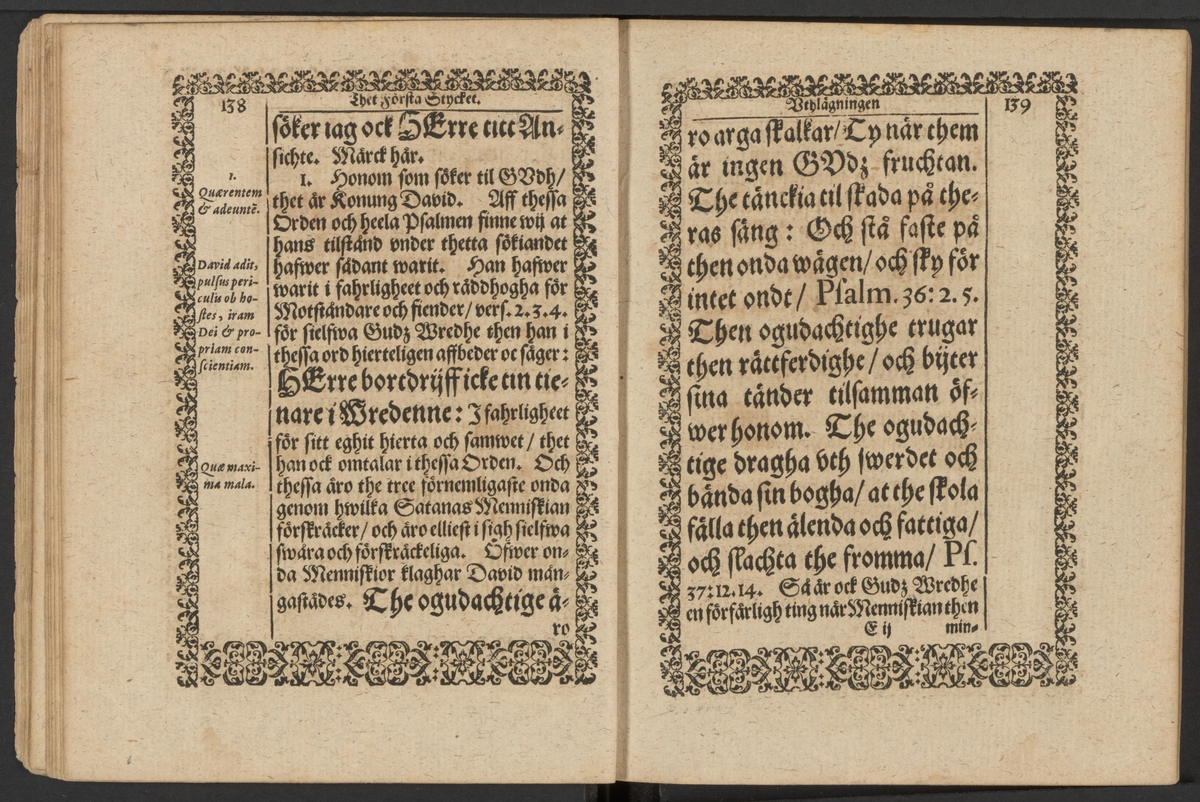 138
Thet Första Stycket.
söker iag ock HErre titt An-
sichte. Märck här.
1. Honom som söker til GVdh/
thet är Konung David. Aff thessa
Orden och heela Psalmen finne wij at
hans tilstånd vnder thetta sökiandet
hafwer sådant warit. Han hafwer
warit i fahrligheet och räddhogha för
Motståndare och fiender/ vers. 2. 3. 4.
för sielfwa Gudz Wredhe then han i
thessa ord hierteligen affbeder oc säger:
HErre bortdrijff icke tin tie-
nare i Wredenne: I fahrligheet
för sitt eghit hierta och samwet/ thet
han ock omtalar i thessa Orden. Och
thessa äro the tree förnemligaste onda
genom hwilka Satanas Menniskian
förskräcker/ och äro elliest i sigh sielfwa
swåra och förskräckeliga. Öfwer on-
da Menniskior klaghar David mån-
gastädes. The ogudachtige ä-
ro
1.
Quærentem
& adeuntē.
David adit,
pulsus peri-
culis ob ho-
stes, iram
Dei & pro-
priam con-
scientiam.
Quæ maxi-
ma mala.
Vthlägningen
139
ro arga skalkar/ Ty när them
är ingen GVdz fruchtan.
The tänckia til skada på the-
ras säng: Och stå faste på
then onda wägen/ och sky för
intet ondt/ Psalm. 36: 2. 5.
Then ogudachtighe trugar
then rättferdighe/ och bijter
sina tänder tilsamman öf-
wer honom. The ogudach-
tige dragha vth swerdet och
bända sin bogha/ at the skola
fälla then älenda och fattiga/
och slachta the fromma/ Ps.
37: 12. 14. Så är ock Gudz Wredhe
en förfärligh ting när Menniskian then
E ij
min-